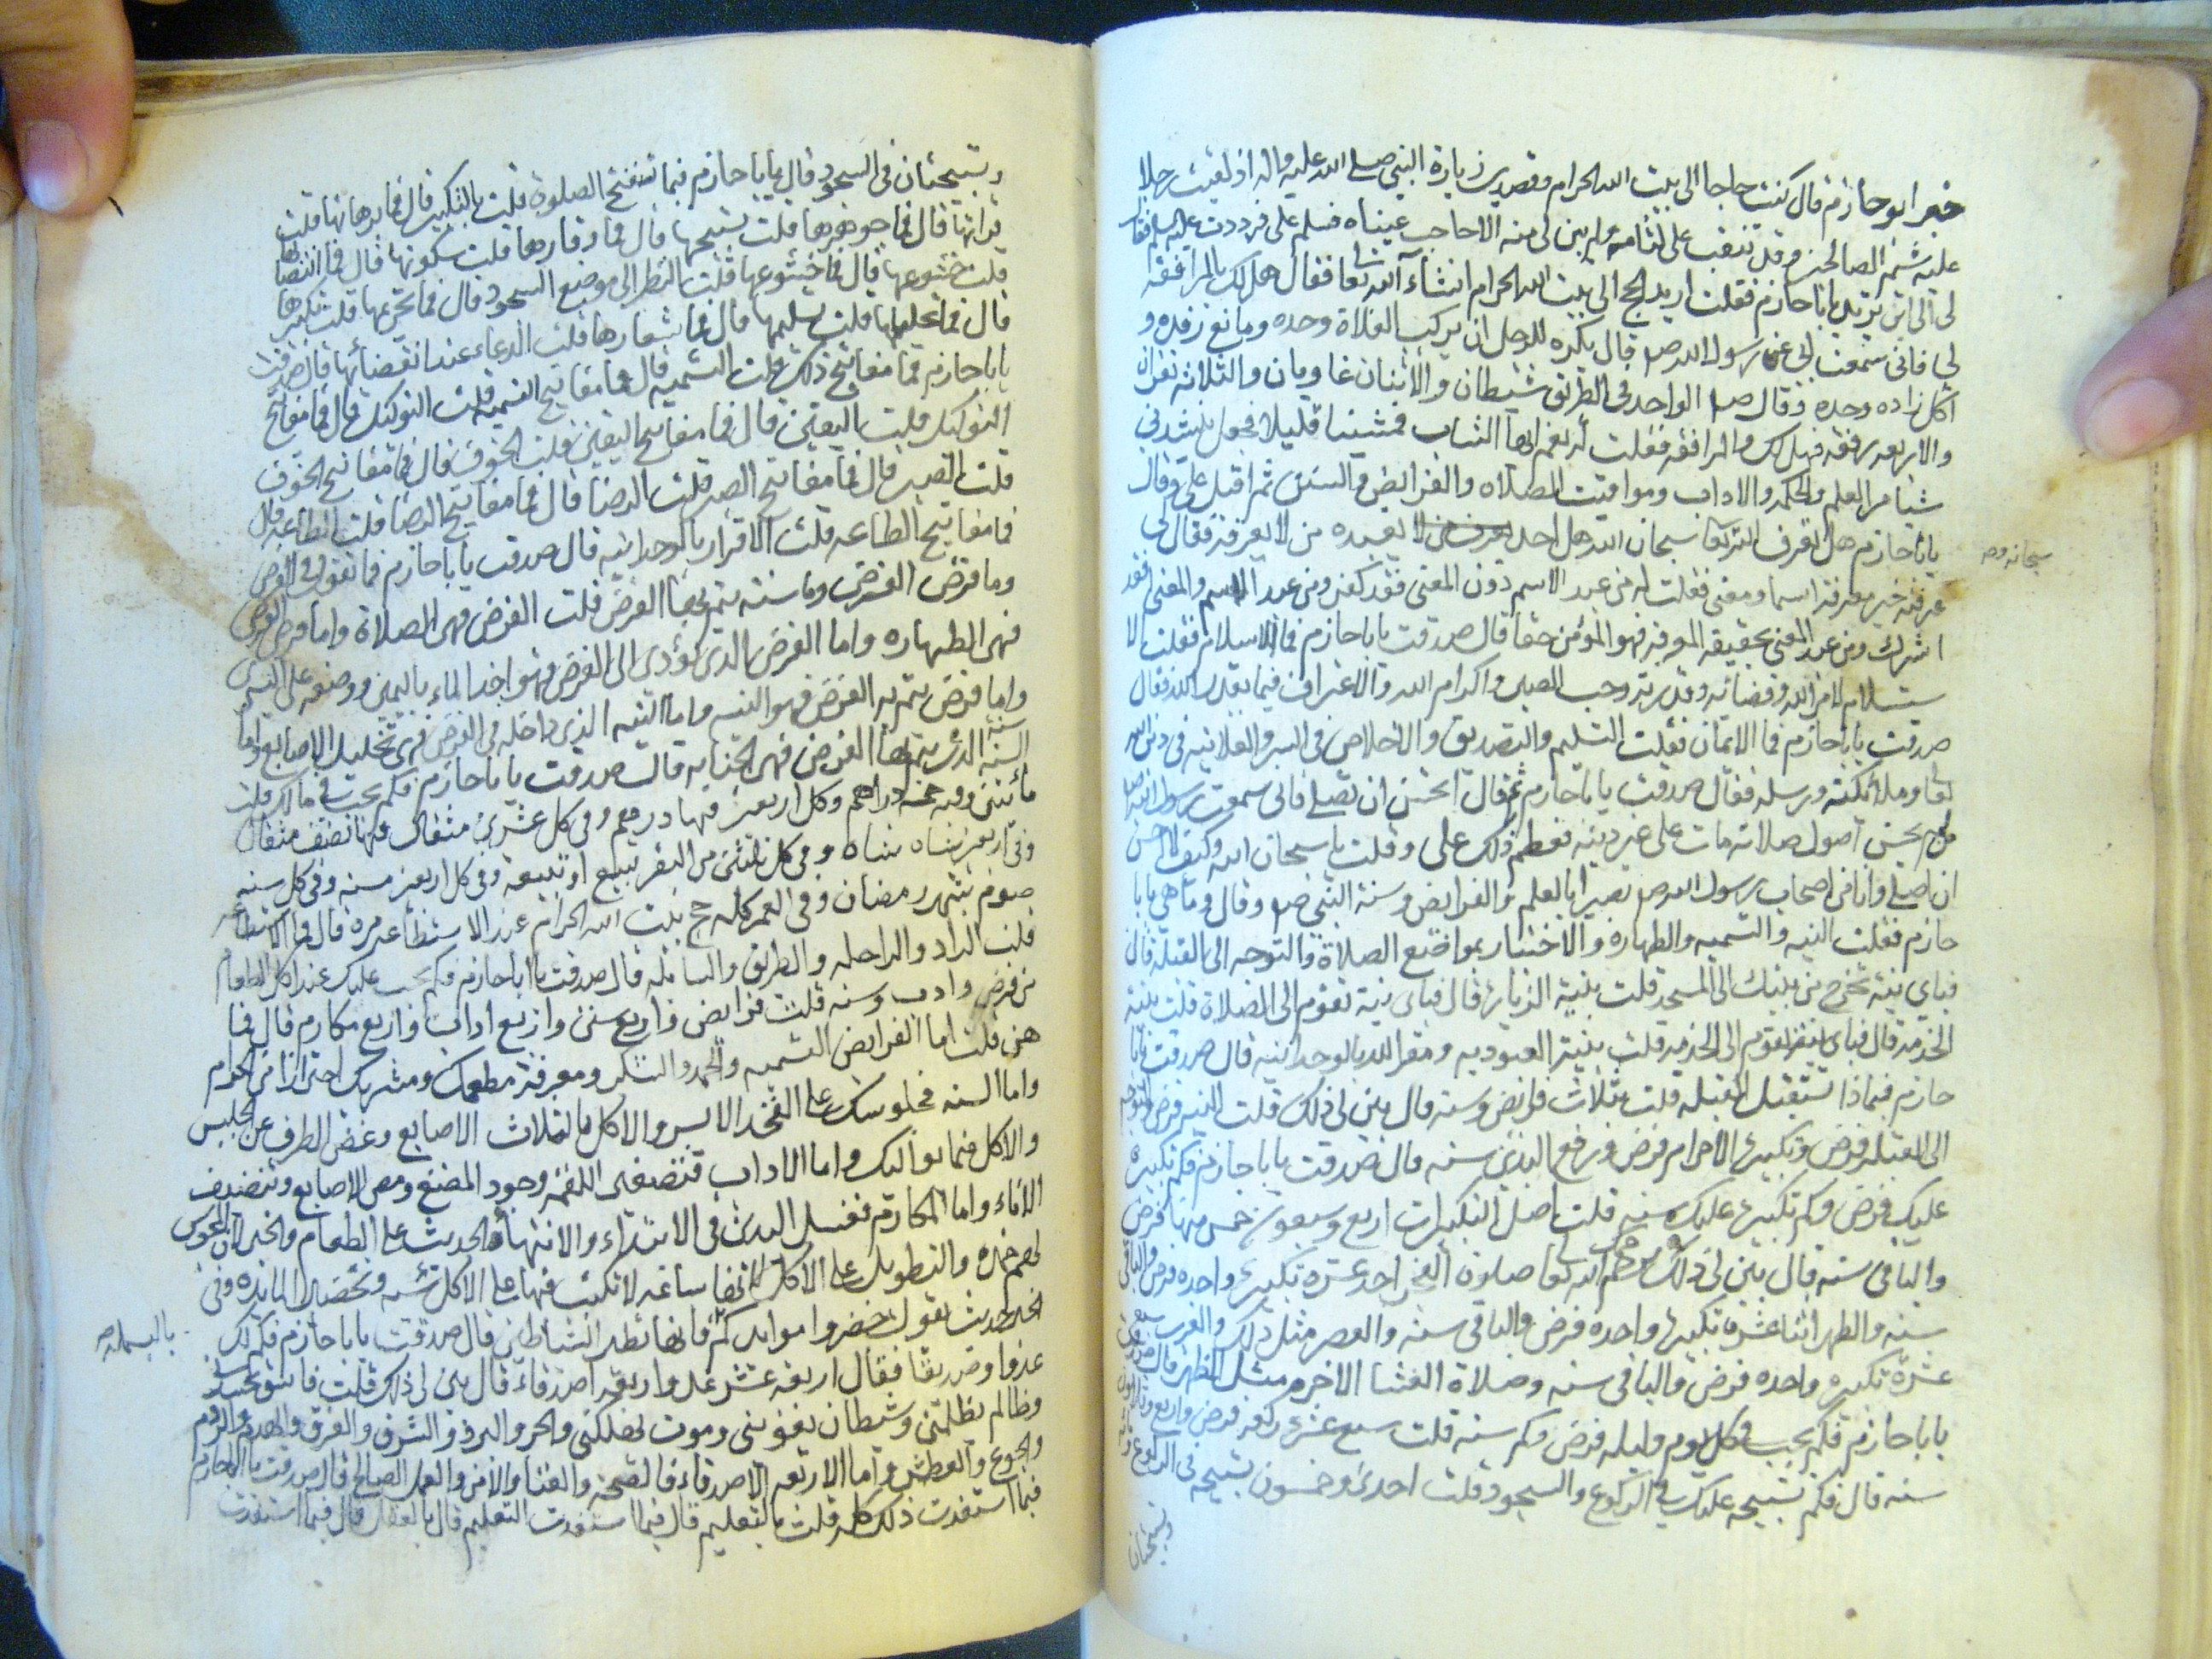 خبر ابو حازم قال كنت حاجا الى بيت الله الحرام وقصدي زيارة النبي صلى الله عليه واله اذ لقيت رجلا
عليه شيم الصالحين وقد تنقب على لثامه ولم يبن لي منه الا حاجب عيناه فسلم علي فرددت عليه السلم فقال
لي الى اين تريد يابا حازم فقلت اريد الحج الى بيت الله الحرام انشاء الله تعالى فقال هل لك بالمرافقه
لي فاني سمعت ابي عن رسول الله صلم قال يكره للرجل ان يركب الفلاة وحده ومانع رفده و
اكل زاده وحده وقال صلم الواحد في الطريق شيطان والاثنان غاويان والثلاثه نفر
والاربعه رفقه فهل لك والمرافقه فقلت له نعم ايها الشاب فمشينا قليلا فجعل ينشدني
شيا من العلم والحكمه والاداب ومواقيت الصلاه والفرايض والسنن ثم اقبل علي وقال
يابا حازم هل تعرف الله تعالى سبحانه الله هل احد يعبده من لا يعرفه فقال لي
سبحانه وصح
عرفته خير معرفة اسما ومعنى فقلت له من عبد الاسم دون المعنى فقد كفر ومن عبد الاسم والمعنى فقد
اشرك ومن عبد المعنى بحقيقه المعرفه فهو المؤمن حقا قال صدقت يابا حازم فما الاسلام فقلت الا
ستسلام لامر الله وقضائه وقدرته وجب الصبر واكرام الله والاعتراف فيما يقدر الله فقال
صدقت يابا حازم فما الايمان فقلت التسليم والتصديق والاخلاص في السر والعلانيه في دين الله
تعالى وملائكته ورسله فقال صدقت يابا حازم ثم قال اتحسن ان تصلي فاني سمعت رسول الله صلم
من لم يحسن اصول صلاته مات على غير دينه فعظم ذلك علي وقلت يا سبحان الله وكيف لا احسن
ان اصلي وانا من اصحاب رسول الله صلم بصيرا بالعلم والفرايض وسنة النبي صلم وقال وما هي يابا
حازم فقلت النيه والتسميه والطهاره والاختيار بمواضع الصلاة والتوجه الى القبله قال
فباي نية تخرج من بيتك الى المسجد قلت بنية الزيارة قال فباي نية تقوم الى الصلاة قلت بنية
الخدمه قال فباي نية تقوم الى الخدمه قلت بنية العبوديه ومقرا لله بالوحدانيه قال صدقت يابا
حازم فبماذا تستقبل القبله قلت بثلاث فرائض وسنه قال بين لي ذلك قلت النيه فرض والتوجه
الى القبله فرض وتكبيرة الاحرام فرض ورفع اليدين سنه قال صدقت يابا حازم فكم تكبيره
عليك فرض وكم تكبيرة عليك سنه قلت اصل التكبيرات اربع وسبعون خمس منها فرض
والباقي سنه قال بين لي ذلك يرحمك الله تعالى صلوة الفجر احد عشره تكبيرة واحده فرض والباقي
سنه والظهر اثنا عشره تكبيرة واحده فرض والباقي سنه والعصر مثل ذلك والمغرب سبع
عشرة تكبيره واحده فرض والباقي سنه وصلاة العشا الاخره مثل الظهر قال صدقت
يابا حازم فكم يجب في كل يوم وليله فرض وكم سنه قلت سبع عشرة ركعه فرض واربع وثلاثون
سنه قال فكم تسبيحه عليك في الركوع والسجود قلت احدى وخمسون تسبيحه في الركوع
وتسبيحتان
وتسبيحتان في السجود قال يابا حازم فبما تفتتح الصلوة قلت بالتكبير قال فما برهانها قلت
قراتها قال فما جوهرها قلت تسبيحها قال فما وقارها قلت سكونها قال فما
قلت خشوعها قال فما خشوعها قلت النظر الى موضع السجود قال فما تحريمها قلت تكبيرها
قال فما تحليلها قلت تسليمها قال فما شعارها قلت الدعاء عند انقضائها قال صدقت
يابا حازم فما مفاتيح ذلك قلت التسميه قال فما مفاتيح التسميه قلت التوكل قال فما مفاتيح
التوكل قلت اليقين قال فما مفاتيح اليقين قلت الخوف قال فما مفاتيح الخوف
قلت الصبر قال فما مفاتيح الصبر قلت الرضا قال فما مفاتيح الرضا قلت الطاعه قال
فما مفاتيح الطاعه قلت الاقرار بالوحدانيه قال صدقت يابا حازم فما تقول في الفرض
وما فرض الفرض وما سنته يتم بها الفرض قلت الفرض فهي الصلاة واما فرض الفرض
فهي الطهاره واما الفرض الذي يؤدى الى الفرض فهو اخذ الماء باليمين ووضعه على اليسرى
واما فرض يتم به الفرض فهو النيه واما السنه الذي داخله في الفرض فهي تخليل الاصابع واما
السنه الذي يتم بها الفرض فهي الجنابه قال صدقت يابا حازم فكم يجب في مالك قلت
مأئتين وفيه خمسه دراهم وكل اربعين فيها درهم وفي كل عشرين مثقال فيها نصف مثقال
وفي اربعين شاه شاه وفي كل ثلثين من البقر تبيع او تبيعه وفي كل اربعين مسنه وفي كل سنه
صوم شهر رمضان وفي العمر كله حج بيت الله الحرام عند الاستطاعه مره قال فما الاستطاعه
قلت الزاد والراحله والطريق والسابله قال صدقت يا ابا حازم فكم يجب عليك عند اكل الطعام
من فرض وادب وسنه قلت فرايض واربع سنن واربع اداب واربع مكارم قال فما
هن قلت اما الفرايض التسميه والحمد والشكر ومعرفة مطعمك ومشربك احترازا من الحرام
واما السنه فجلوسك على الفخذ الايسر والاكل بالثلاث الاصابع وغض الطرف عن الجليس
والاكل فيما يواليك واما الاداب فتصغير اللقمه وجود المضغ ومص الاصابع وتنضيف
الاناء واما المكارم فغسل اليدين في الابتداء والانتهاء والحديث على الطعام
والتطويل على الاكل فانها ساعه لا تكتب فيها على الاكل سيئه وتحضر المائده
الحديث يقول احضروا موايدكم فانها تطرد الشياطين قال صدقت يابا حازم فكم لك
بالبسمله صح
عدوا وصديقا فقال اربعه عشر عدو واربعه اصدقاء قال بين لي ذلك قلت
وظالم يظلمني وشيطان يغويني وموت يهلكني والحر والبرد والشرق والغرق والهدم والردم
والجوع والعطش واما الاربعه الاصدقاء فالصحه والغنا والامن والعمل الصالح قال صدقت يا ابا حازم
فبما استفدت ذلك كله قلت بالتعليم قال فبما استفدت التعليم قال بالعقل قال فبما استفدت